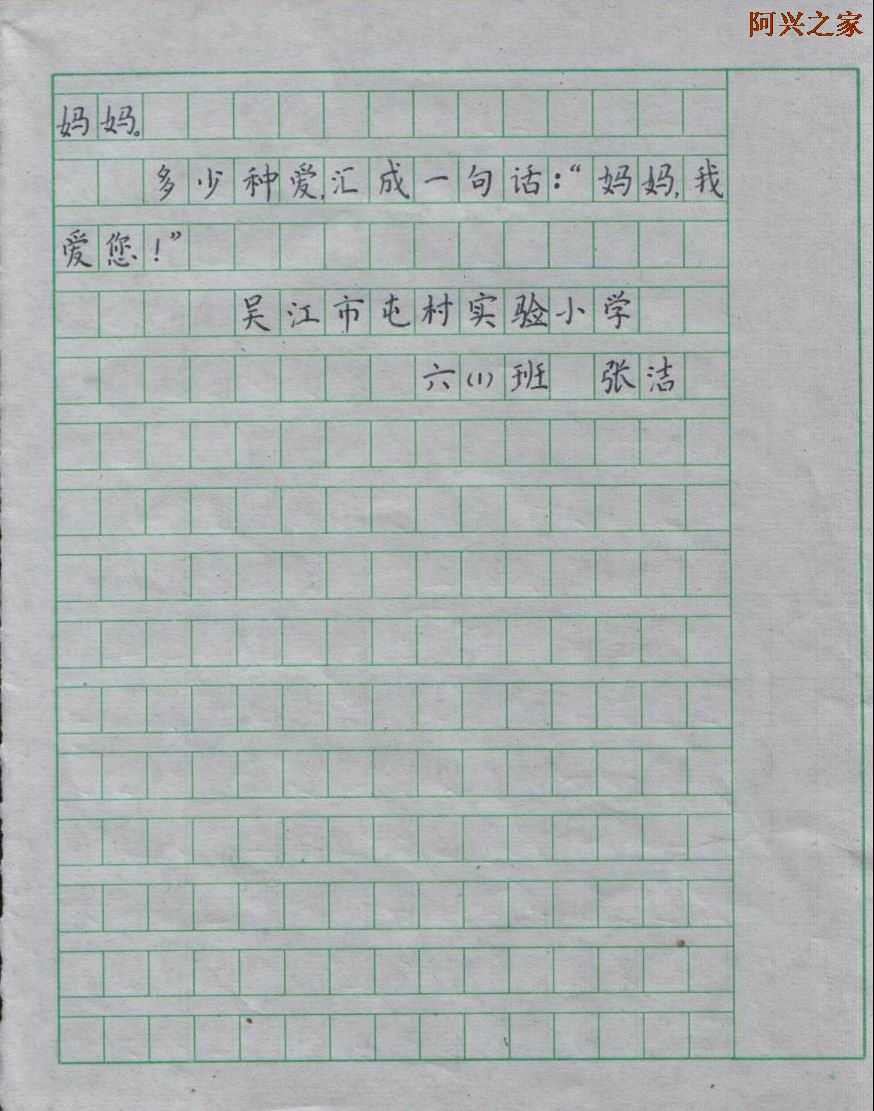 阿兴之家
妈妈。
多少种爱,汇成一句话:“妈妈,我
爱您!”
吴江市屯村实验小学
六(1)班 张洁